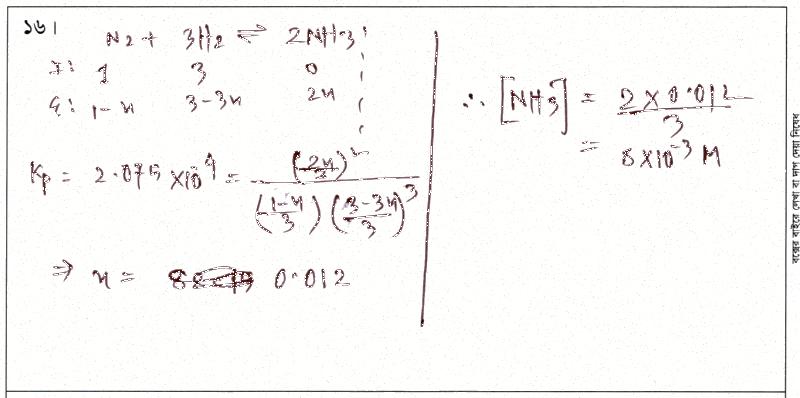 ১৬।
N2 + 3H2 ⇌ 2NH3
I: 1 3 0
E: 1-x 3-3x 2x
Kp = 2.075 × 10^-4 = (2x/3)^2 / ((1-x)/3) ((3-3x)/3)^3
⇒ x = 0.012
∴ [NH3] = 2 × 0.012 / 3
= 8 × 10^-3 M
বক্সের বাইরে লেখা বা দাগ দেয়া নিষেধ